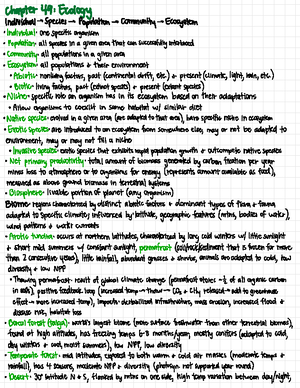 Chapter 49: Ecology
Individual → Species → Population → Community → Ecosystem
• Individual: one specific organism
• Population: all species in a given area that can successfully interbreed
• Community: all populations in a given area
• Ecosystem: all populations + their environment
• Abiotic: nonliving factors, past (continental drift, etc.) + present (climate, light, lakes, etc.)
• Biotic: living factors, past (extinct species) + present (extant species)
• Niche: specific role an organism has in its ecosystem based on their adaptations
• Allow organisms to coexist in same habitat w/ similar diet
• Native species: evolved in a given area (are adapted to that area), have specific niches in ecosystem
• Exotic species: are introduced to an ecosystem from somewhere else, may or may not be adapted to
environment, may or may not fill a niche
• Invasive species: exotic species that exhibits rapid population growth + outcompetes native species
• Net primary productivity: total amount of biomass generated by carbon fixation per year
minus loss to atmosphere or to organisms for energy (represents amount available as food),
measured as above ground biomass in terrestrial systems
• Biosphere: livable portion of planet (any organism)
Biomes: regions characterized by distinct abiotic factors + dominant types of flora + fauna
adapted to specific climate; influenced by latitude, geographic features (mtns, bodies of water),
wind patterns + water currents
• Arctic tundra: occurs at northern latitudes, characterized by long cold winters w/ little sunlight
+ short mild summers w/ constant sunlight, permafrost (soil/rock/sediment that is frozen for more
than 2 consecutive years), little rainfall, abundant grasses + shrubs, animals are adapted to cold, low
diversity + low NPP
• Thawing permafrost: result of global climate change (permafrost stores ~½ of all organic carbon
in soil), positive feedback loop (increased temp → thaw → CO₂ + CH₄ released → add to greenhouse
effect → more increased temp), impacts: destabilized infrastructure, mass erosion, increased flood +
disease risk, habitat loss
• Boreal forest (taiga): world's largest biome (more surface freshwater than other terrestrial biomes),
found at high latitudes, has freezing temps 6-8 months/year, mostly conifers (adapted to cold,
dry winters + cool, moist summers), low NPP, low diversity
• Temperate forest: mid latitudes, exposed to both warm + cold air masses (moderate temps +
rainfall), has 4 seasons, moderate NPP + diversity
• Desert: 30° latitude N + S, flanked by mtns on one side, high temp variation between day/night,